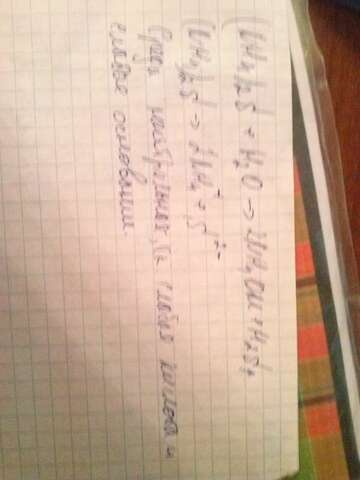 (NH₄)₂S + H₂O → 2NH₄OH + H₂S↓
(NH₄)₂S → 2NH₄⁺ + S²⁻
Среда нейтральная, т.к. слабая кислота и
слабое основание.